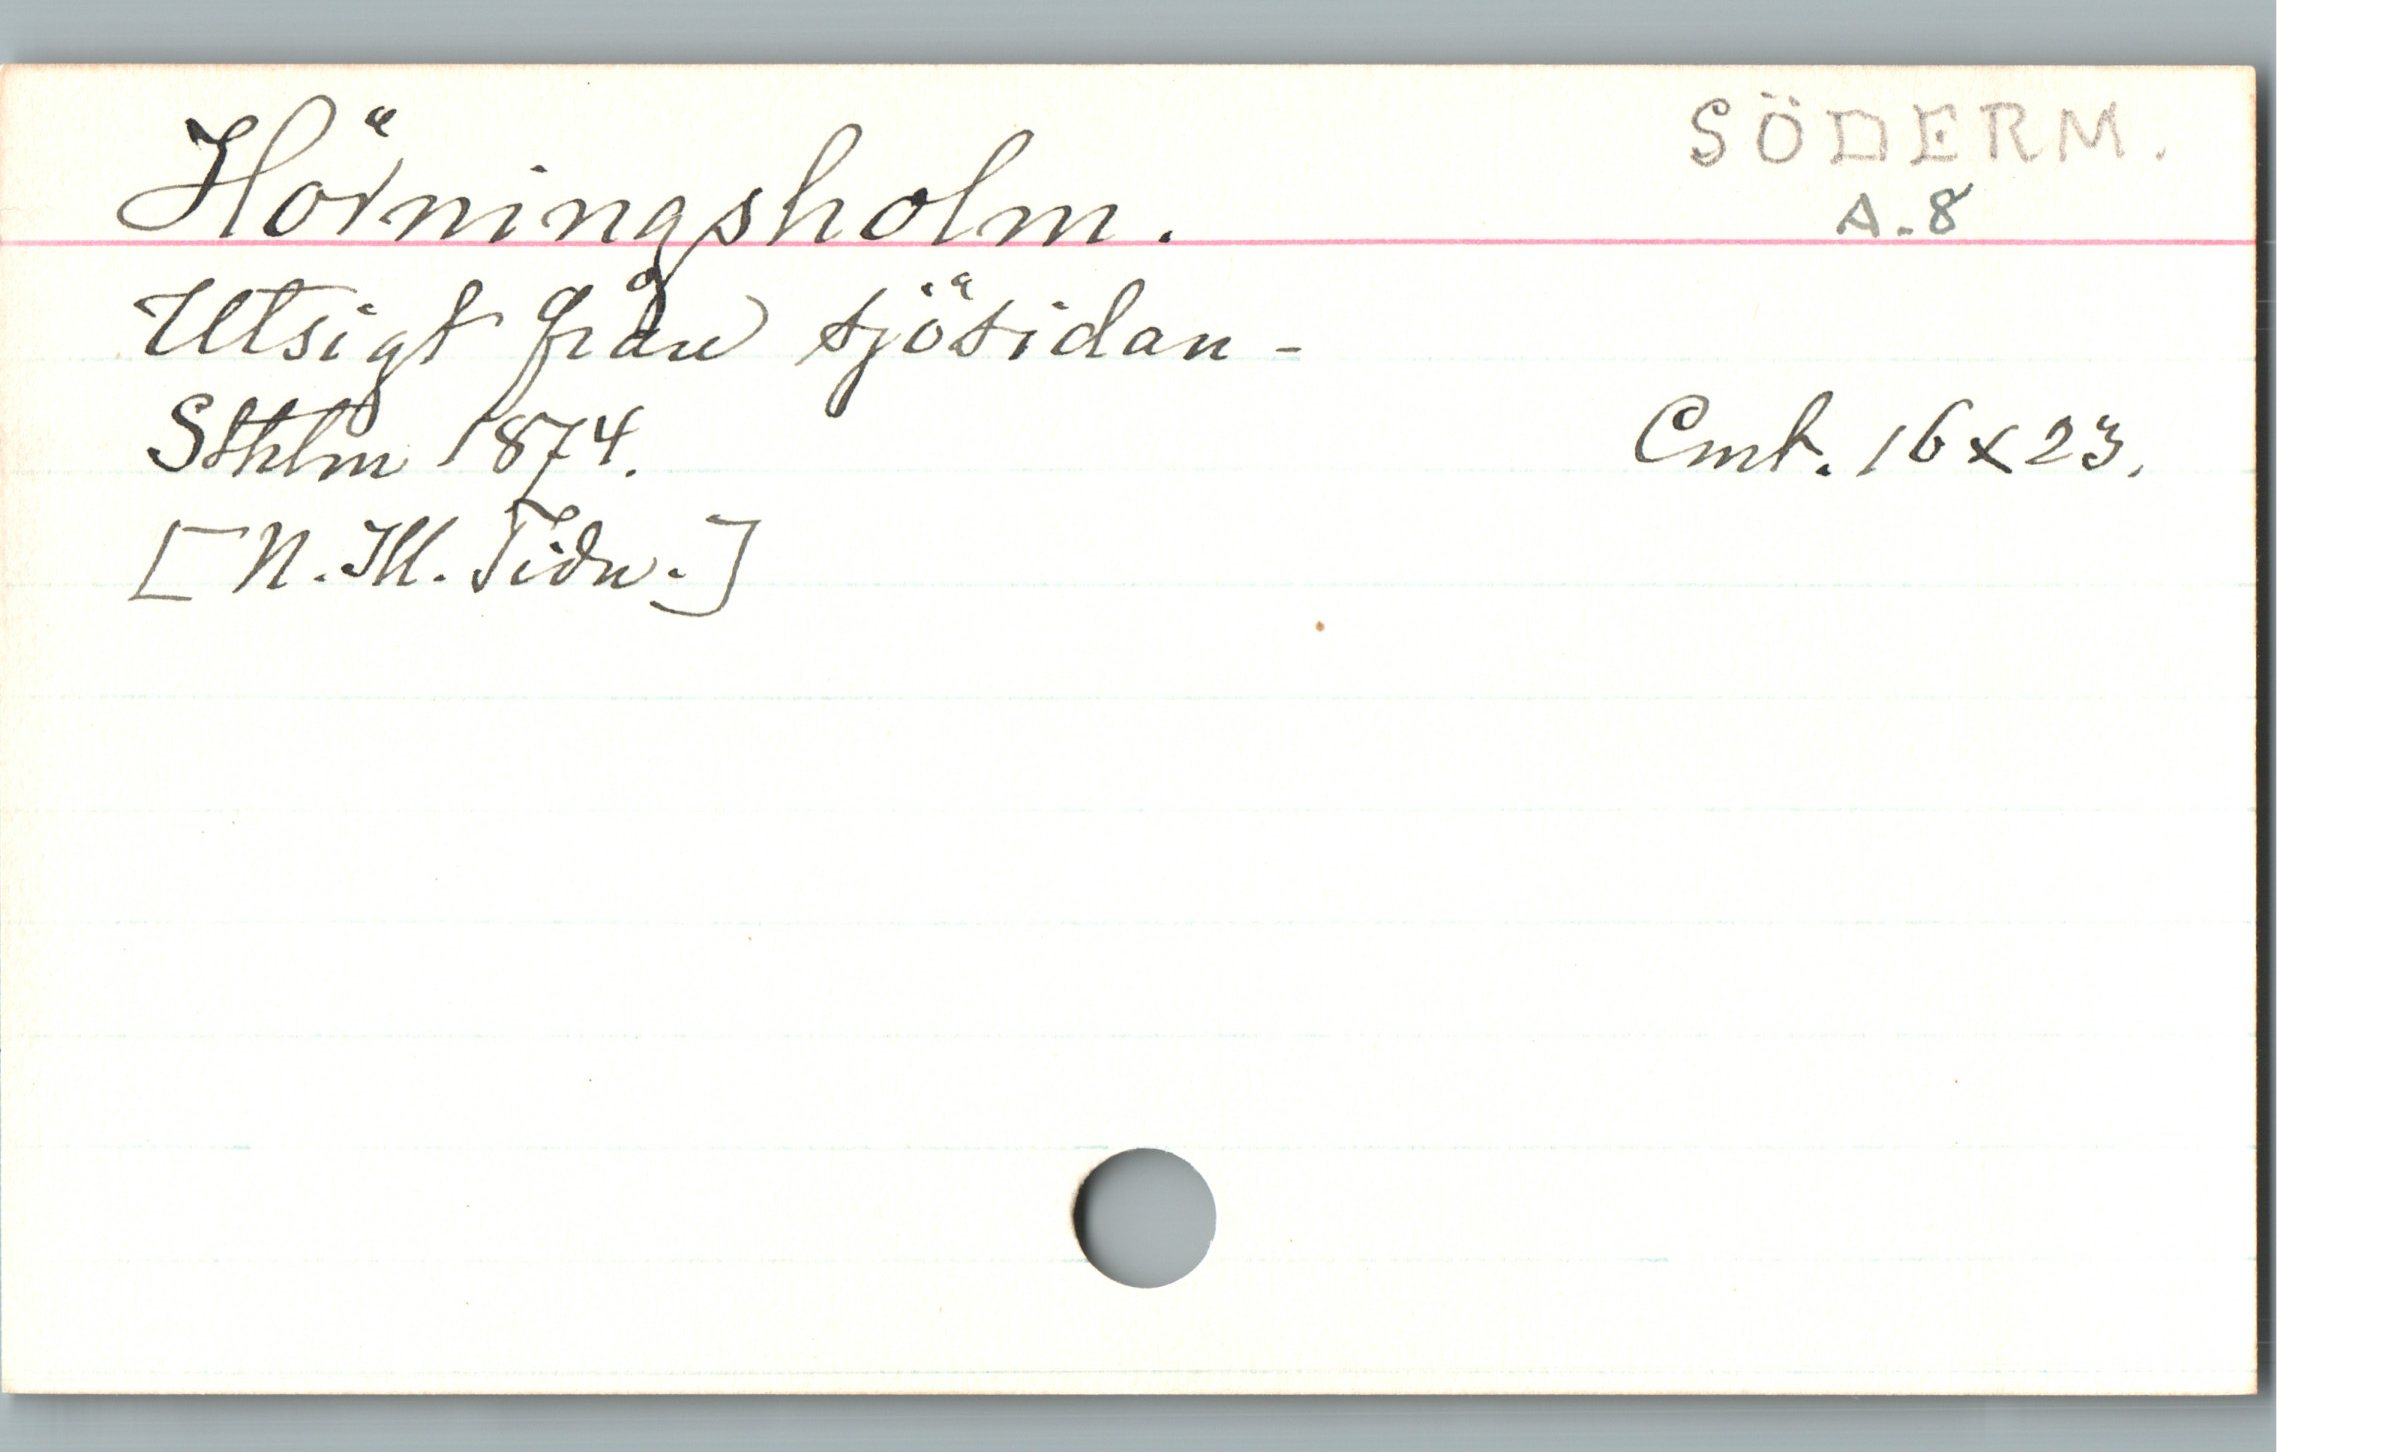 Hörningsholm.
SÖDERM.
A.8
Utsigt från sjösidan -
Sthlm 1874.
Cmt. 16 x 23.
[N. Ill. Tidn.]